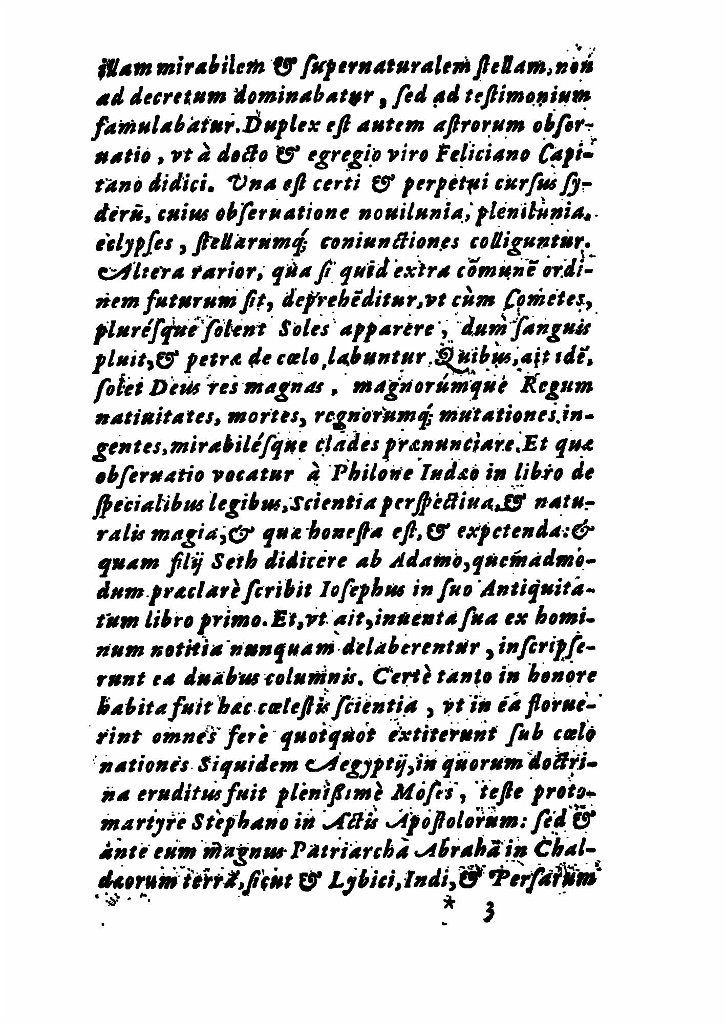 illam mirabilem & ſupernaturalem ſtellam, non
ad decretum dominabatur, ſed ad teſtimonium
famulabatur. Duplex eſt autem aſtrorum obſer-
uatio, vt à docto & egregio viro Feliciano Capi-
tano didici. Vna eſt certi & perpetui curſus ſy-
derū, cuius obſeruatione nouilunia, plenilunia,
eclypſes, ſtellarumq́; coniunctiones colliguntur.
Altera rarior, qua ſi quid extra cōmunē ordi-
nem futurum ſit, deprehēditur, vt cùm Cometes,
pluréſque ſolent Soles apparere, dum ſanguis
pluit, & petræ de cœlo labuntur. Quibus, ait idē,
ſolet Deus res magnas, magnorúmque Regum
natiuitates, mortes, regnorumq́; mutationes, in-
gentes, mirabiléſque clades prænunciare. Et quæ
obſeruatio vocatur à Philone Iudæo in libro de
ſpecialibus legibus, Scientia perſpectiua, & natu-
ralis magia, & quæ honeſta eſt, & expetenda: &
quam filij Seth didicere ab Adamo, quemadmo-
dum præclarè ſcribit Ioſephus in ſuo Antiquita-
tum libro primo. Et, vt ait, inuenta ſua ex homi-
num notitia nunquam delaberentur, inſcripſe-
runt ea duabus columnis. Certè tanto in honore
habita fuit hæc cœleſtis ſcientia, vt in ea florue-
rint omnes ferè quotquot extiterunt ſub cœlo
nationes. Siquidem Aegyptij, in quorum doctri-
na eruditus fuit pleniſſimè Moſes, teſte proto-
martyre Stephano in Actis Apoſtolorum: ſed &
ante eum magnus Patriarcha Abrahā in Chal-
dæorum terra, ſicut & Lybici, Indi, & Perſarum
* 3